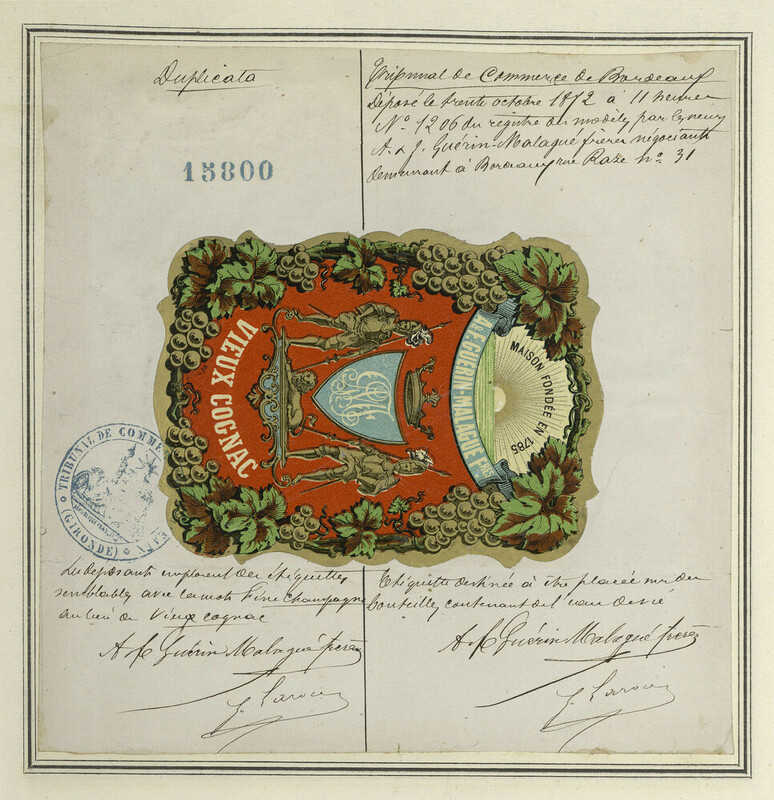 Duplicata
15800
Tribunal de Commerce de Bordeaux
Déposé le trente octobre 1872 à 11 heures
N° 1206 du registre des modèles par
A. & J. Guérin-Malagué frères négociants
demeurant à Bordeaux rue Raze n° 31
MAISON FONDÉE EN 1785
GUÉRIN-MALAGUÉ FRES
VIEUX COGNAC
TRIBUNAL DE COMMERCE
(GIRONDE)
Les déposants emploient des étiquettes
semblables avec les mots Fine Champagne
au lieu de Vieux cognac
Guérin Malagué frères
Etiquette destinée à être placée sur des
bouteilles contenant de l'eau de vie
Guérin Malagué frères